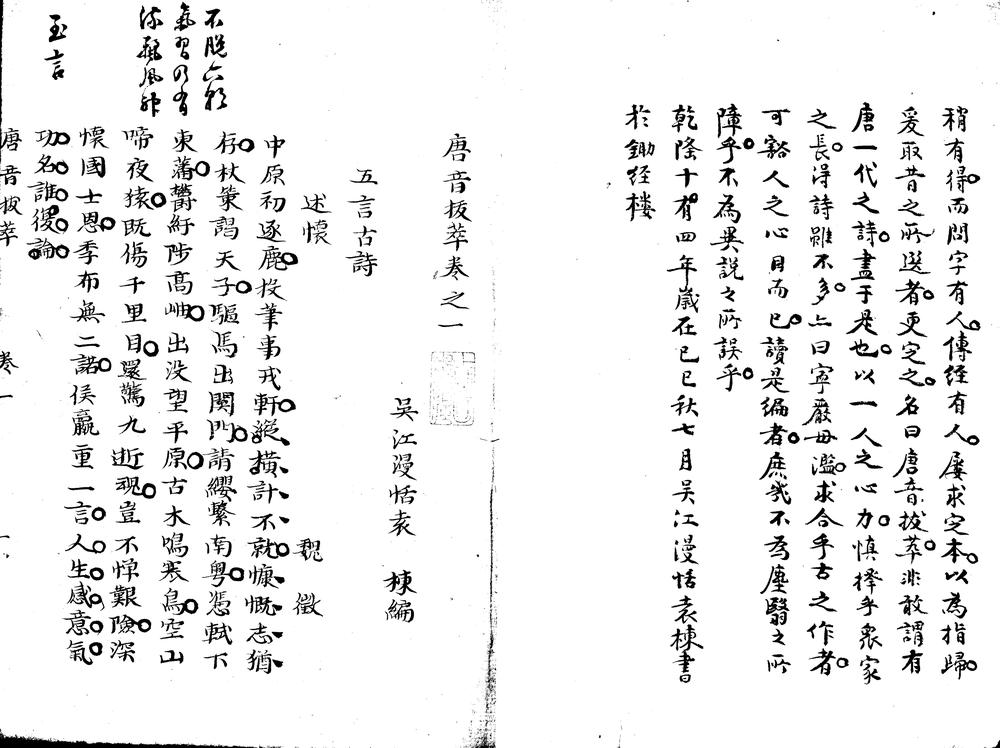 稍有得而問字有人傳経有人屡求定本以為指歸
爰取昔之所選者更定之名曰唐音拔萃非敢謂有
唐一代之詩盡于是也以一人之心力慎擇乎衆家
之長得詩雖不多亦曰寧嚴毋濫求合乎古之作者
可豁人之心目而已讀是编者庶幾不為塵翳之所
障乎不為異説之所誤乎
乾隆十有四年嵗在己巳秋七月吴江漫恬袁棟書
於鋤経楼
唐音拔萃卷之一
吴江漫恬袁 棟編
五言古詩
述懷 魏徵
中原初逐鹿投筆事戎軒縱横計不就慷慨志猶
存杖策謁天子驅馬出関門請纓繫南粤憑軾下
東藩欝紆陟髙岫出没望平原古木鳴寒鳥空山
啼夜猿既傷千里目還驚九逝魂豈不憚艱險深
懷國士恩季布無二諾侯嬴重一言人生感意氣
功名誰復論
不脱六朝
氣習乃有
流麗風神
至言
唐音拔萃 卷一 一